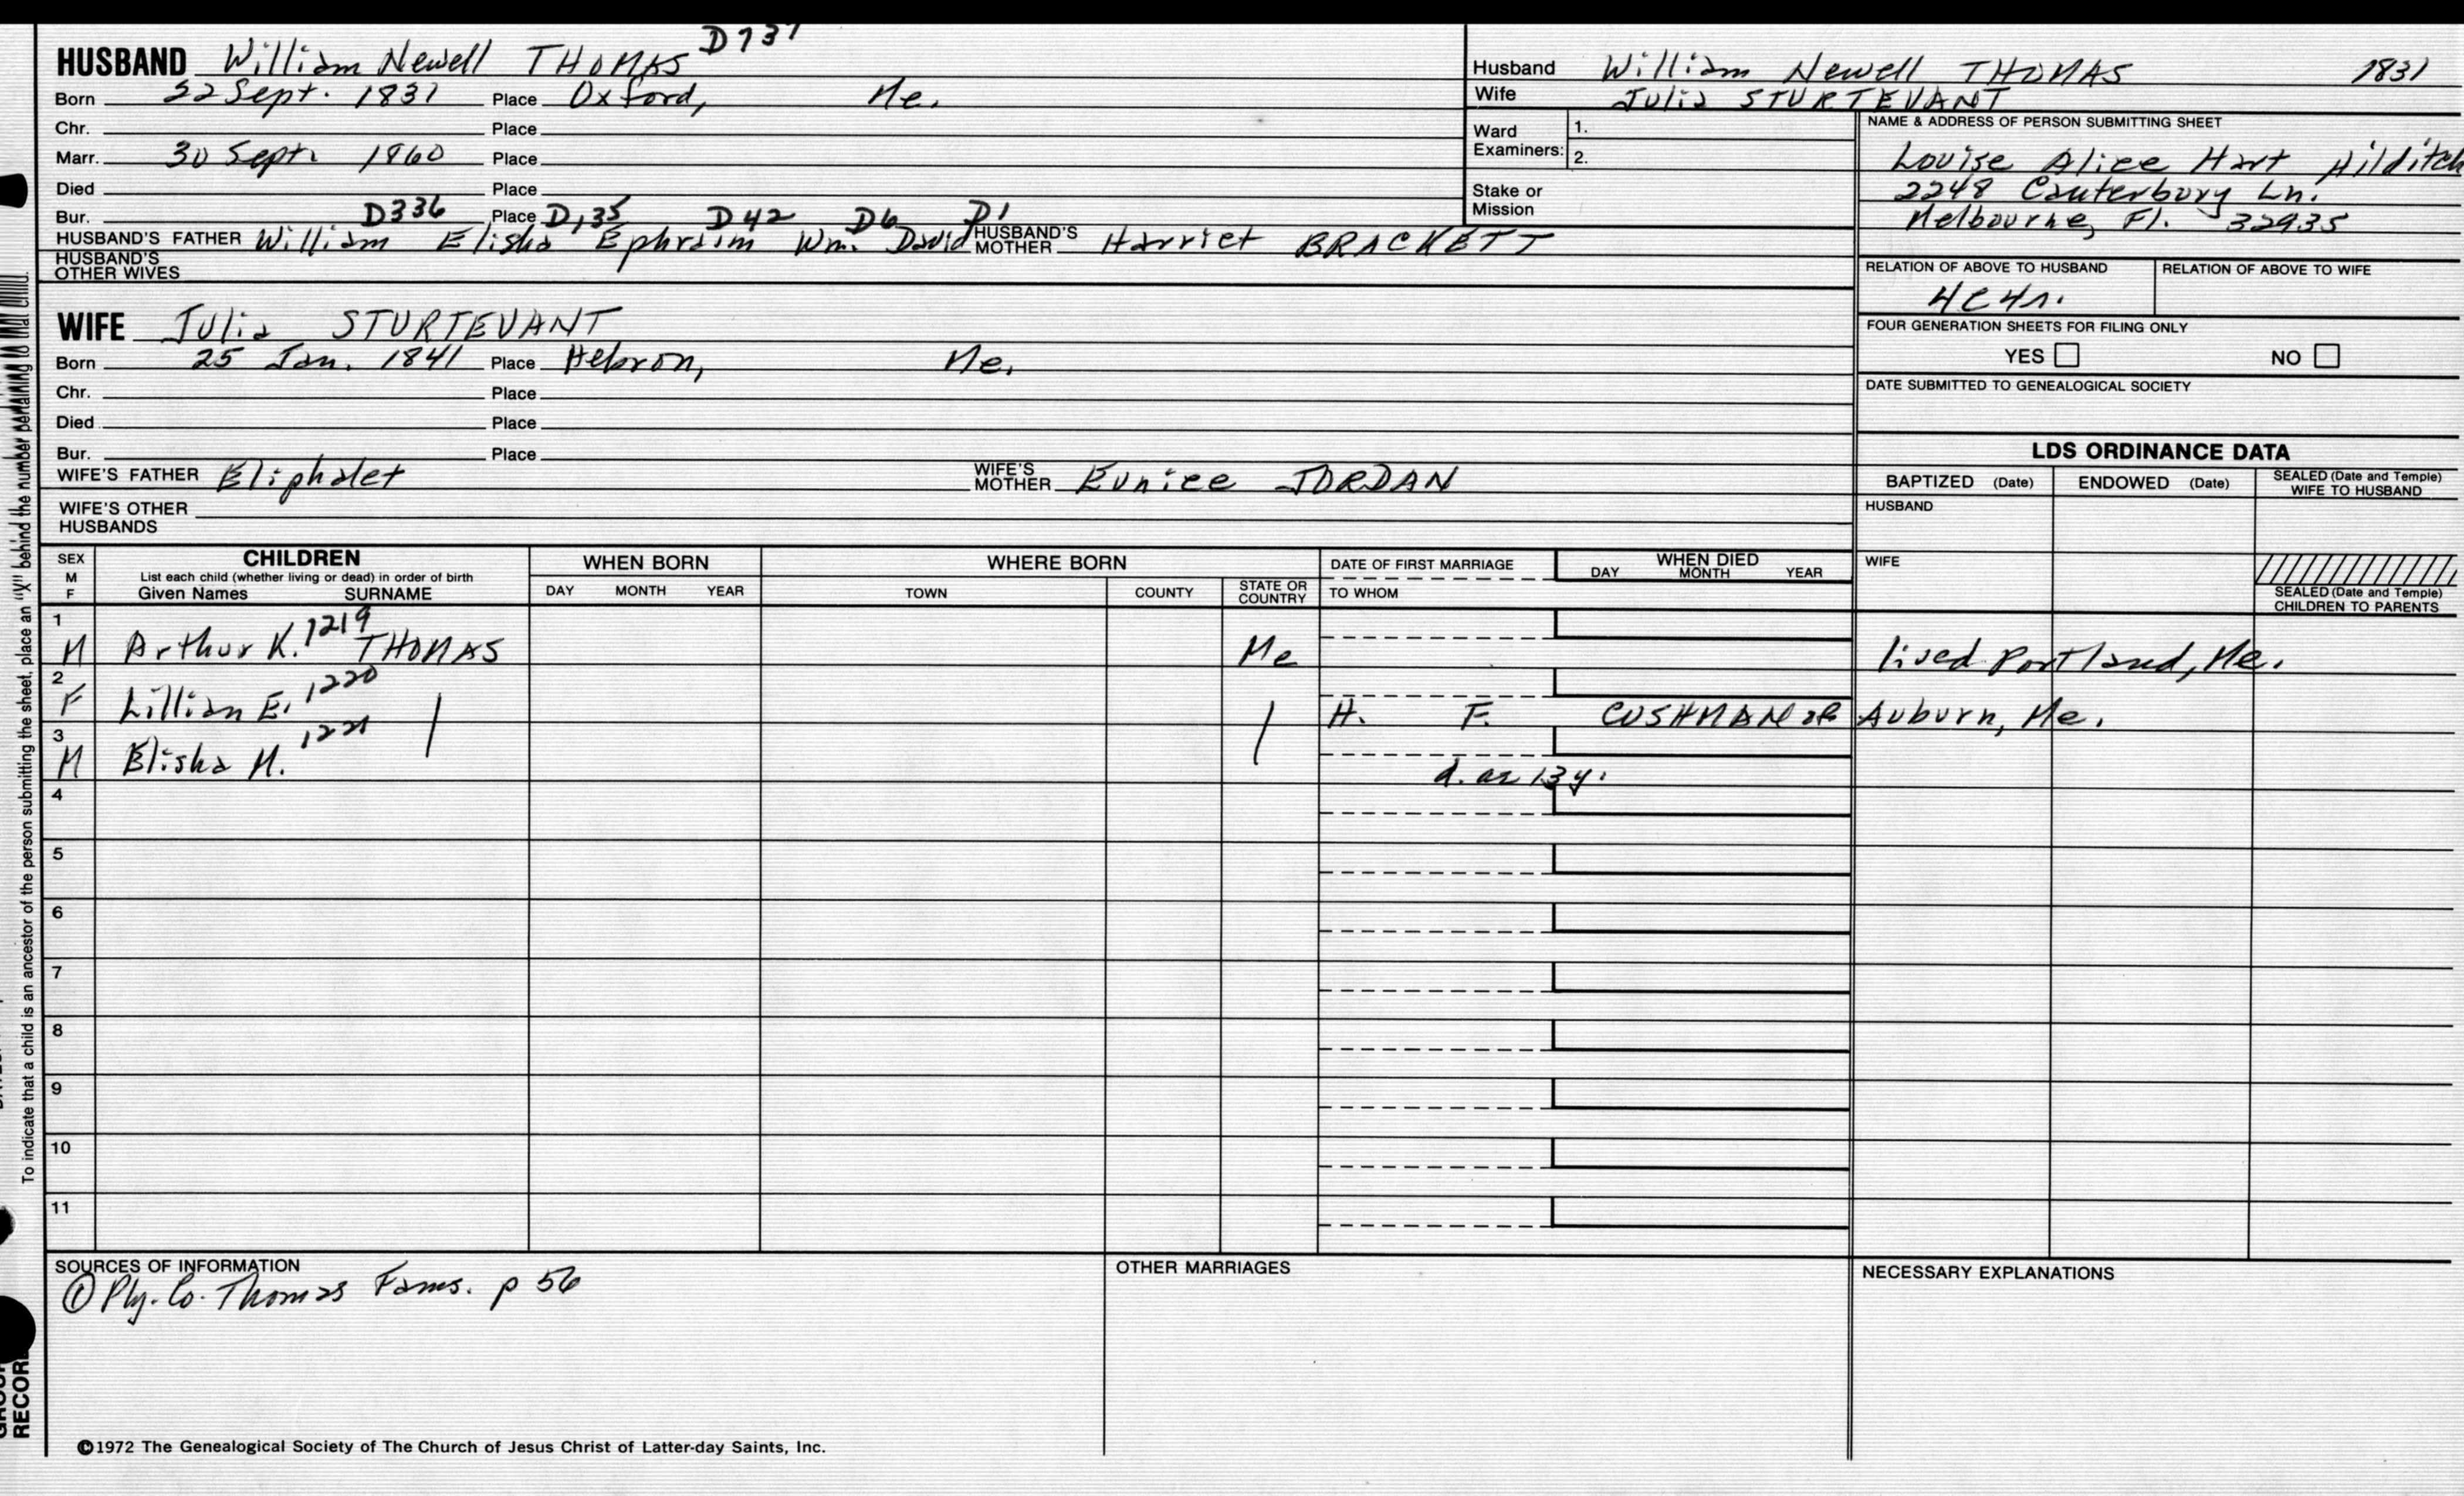 HUSBAND William Newell THOMAS D737
Born 22 Sept. 1831 Place Oxford, Me.
Chr. Place
Marr. 30 Sept. 1860 Place
Died Place
Bur. Place
D336 D135 D42 D6 D1
HUSBAND'S FATHER William Elisha Ephraim Wm. David HUSBAND'S MOTHER Harriet BRACKETT
HUSBAND'S OTHER WIVES
WIFE Julia STURTEVANT
Born 25 Jan. 1841 Place Hebron, Me.
Chr. Place
Died Place
Bur. Place
WIFE'S FATHER Eliphalet WIFE'S MOTHER Eunice JORDAN
WIFE'S OTHER HUSBANDS
Husband William Newell THOMAS 1831
Wife Julia STURTEVANT
Ward Examiners: 1.
2.
Stake or Mission
NAME & ADDRESS OF PERSON SUBMITTING SHEET
Louise Alice Hart Hilditch
2248 Canterbury Ln.
Melbourne, Fl. 32935
RELATION OF ABOVE TO HUSBAND RELATION OF ABOVE TO WIFE
4C4r.
FOUR GENERATION SHEETS FOR FILING ONLY
YES NO
DATE SUBMITTED TO GENEALOGICAL SOCIETY
LDS ORDINANCE DATA
BAPTIZED (Date) ENDOWED (Date) SEALED (Date and Temple) WIFE TO HUSBAND
HUSBAND
WIFE
SEALED (Date and Temple) CHILDREN TO PARENTS
SEX M F
CHILDREN
List each child (whether living or dead) in order of birth
Given Names SURNAME
WHEN BORN
DAY MONTH YEAR
WHERE BORN
TOWN COUNTY STATE OR COUNTRY
DATE OF FIRST MARRIAGE
TO WHOM
WHEN DIED
DAY MONTH YEAR
1 M Arthur K. 1219 THOMAS Me lived Portland, Me.
2 F Lillian E. 1220 H. F. CUSHMAN of Auburn, Me.
3 M Elisha M. 1221 d. ae 13y.
4
5
6
7
8
9
10
11
SOURCES OF INFORMATION
① Ply. Co. Thomas Fams. p 56
OTHER MARRIAGES
NECESSARY EXPLANATIONS
©1972 The Genealogical Society of The Church of Jesus Christ of Latter-day Saints, Inc.
To indicate that a child is an ancestor of the person submitting the sheet, place an "X" behind the number pertaining to that child.